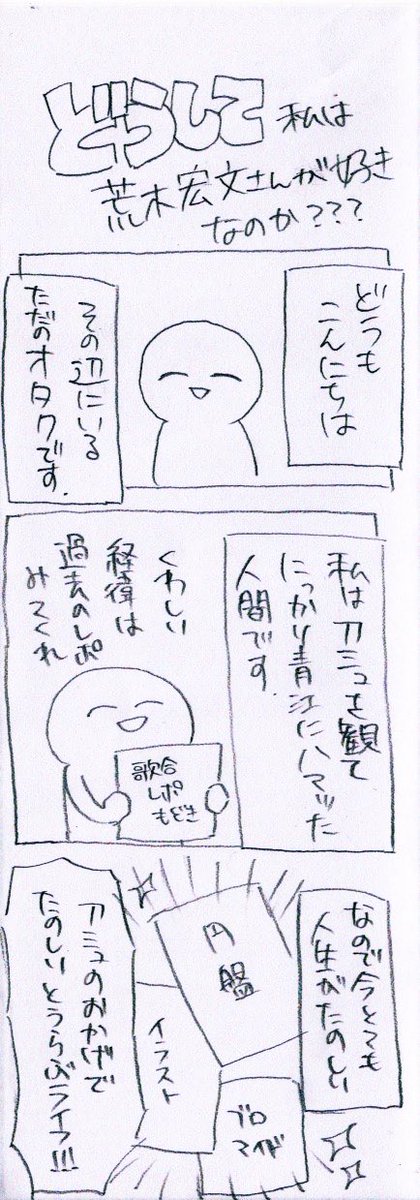 どうして
私は
荒木宏文さんが好き
なのか???
どうも
こんにちは
その辺にいる
ただのオタクです.
私は刀ミュを観て
にっかり青江にハマッた
人間です.
くわしい
経緯は
過去のレポ
みてくれ
歌合
レポ
もどき
なので今とても
人生がたのしい
円盤
イラスト
ブロ
マイド
刀ミュのおかげで
たのしいとうらぶライフ!!!